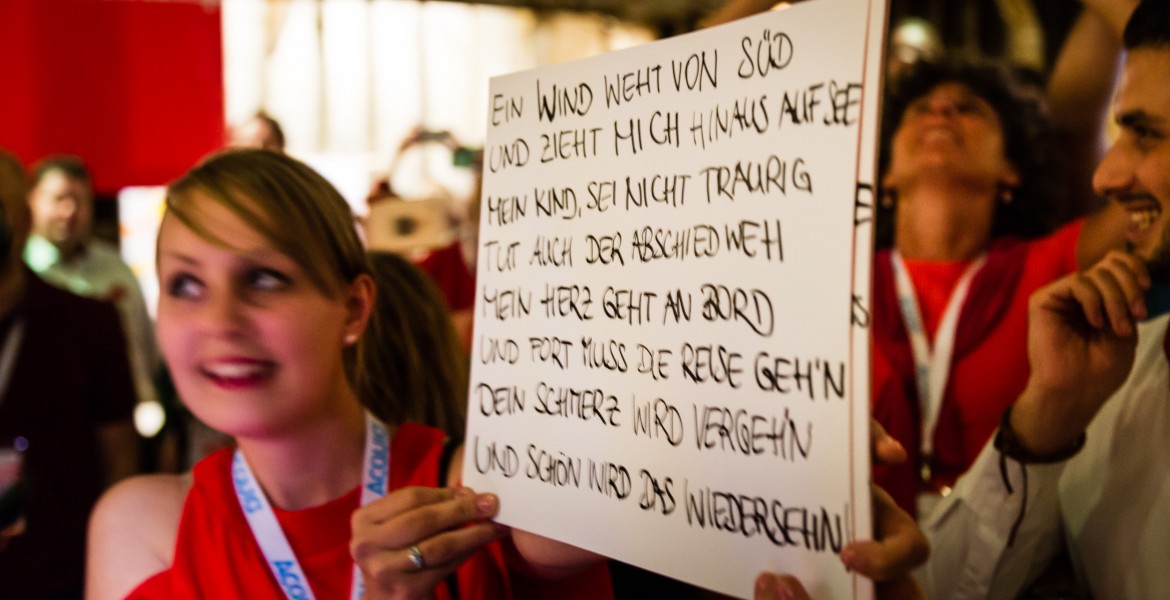 EIN WIND WEHT VON SÜD
UND ZIEHT MICH HINAUS AUF SEE
MEIN KIND, SEI NICHT TRAURIG
TUT AUCH DER ABSCHIED WEH
MEIN HERZ GEHT AN BORD
UND FORT MUSS DIE REISE GEH'N
DEIN SCHMERZ WIRD VERGEH'N
UND SCHÖN WIRD DAS WIEDERSEHN